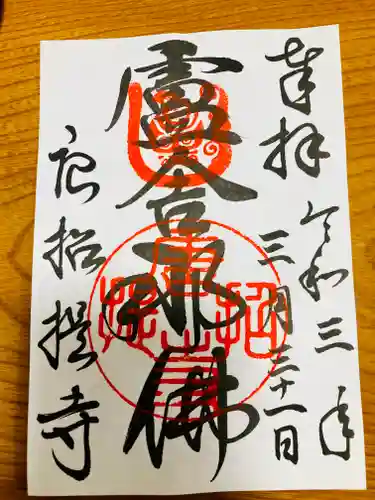 奉拝
令和三年
三月三十一日
盧舎那佛
唐招提寺